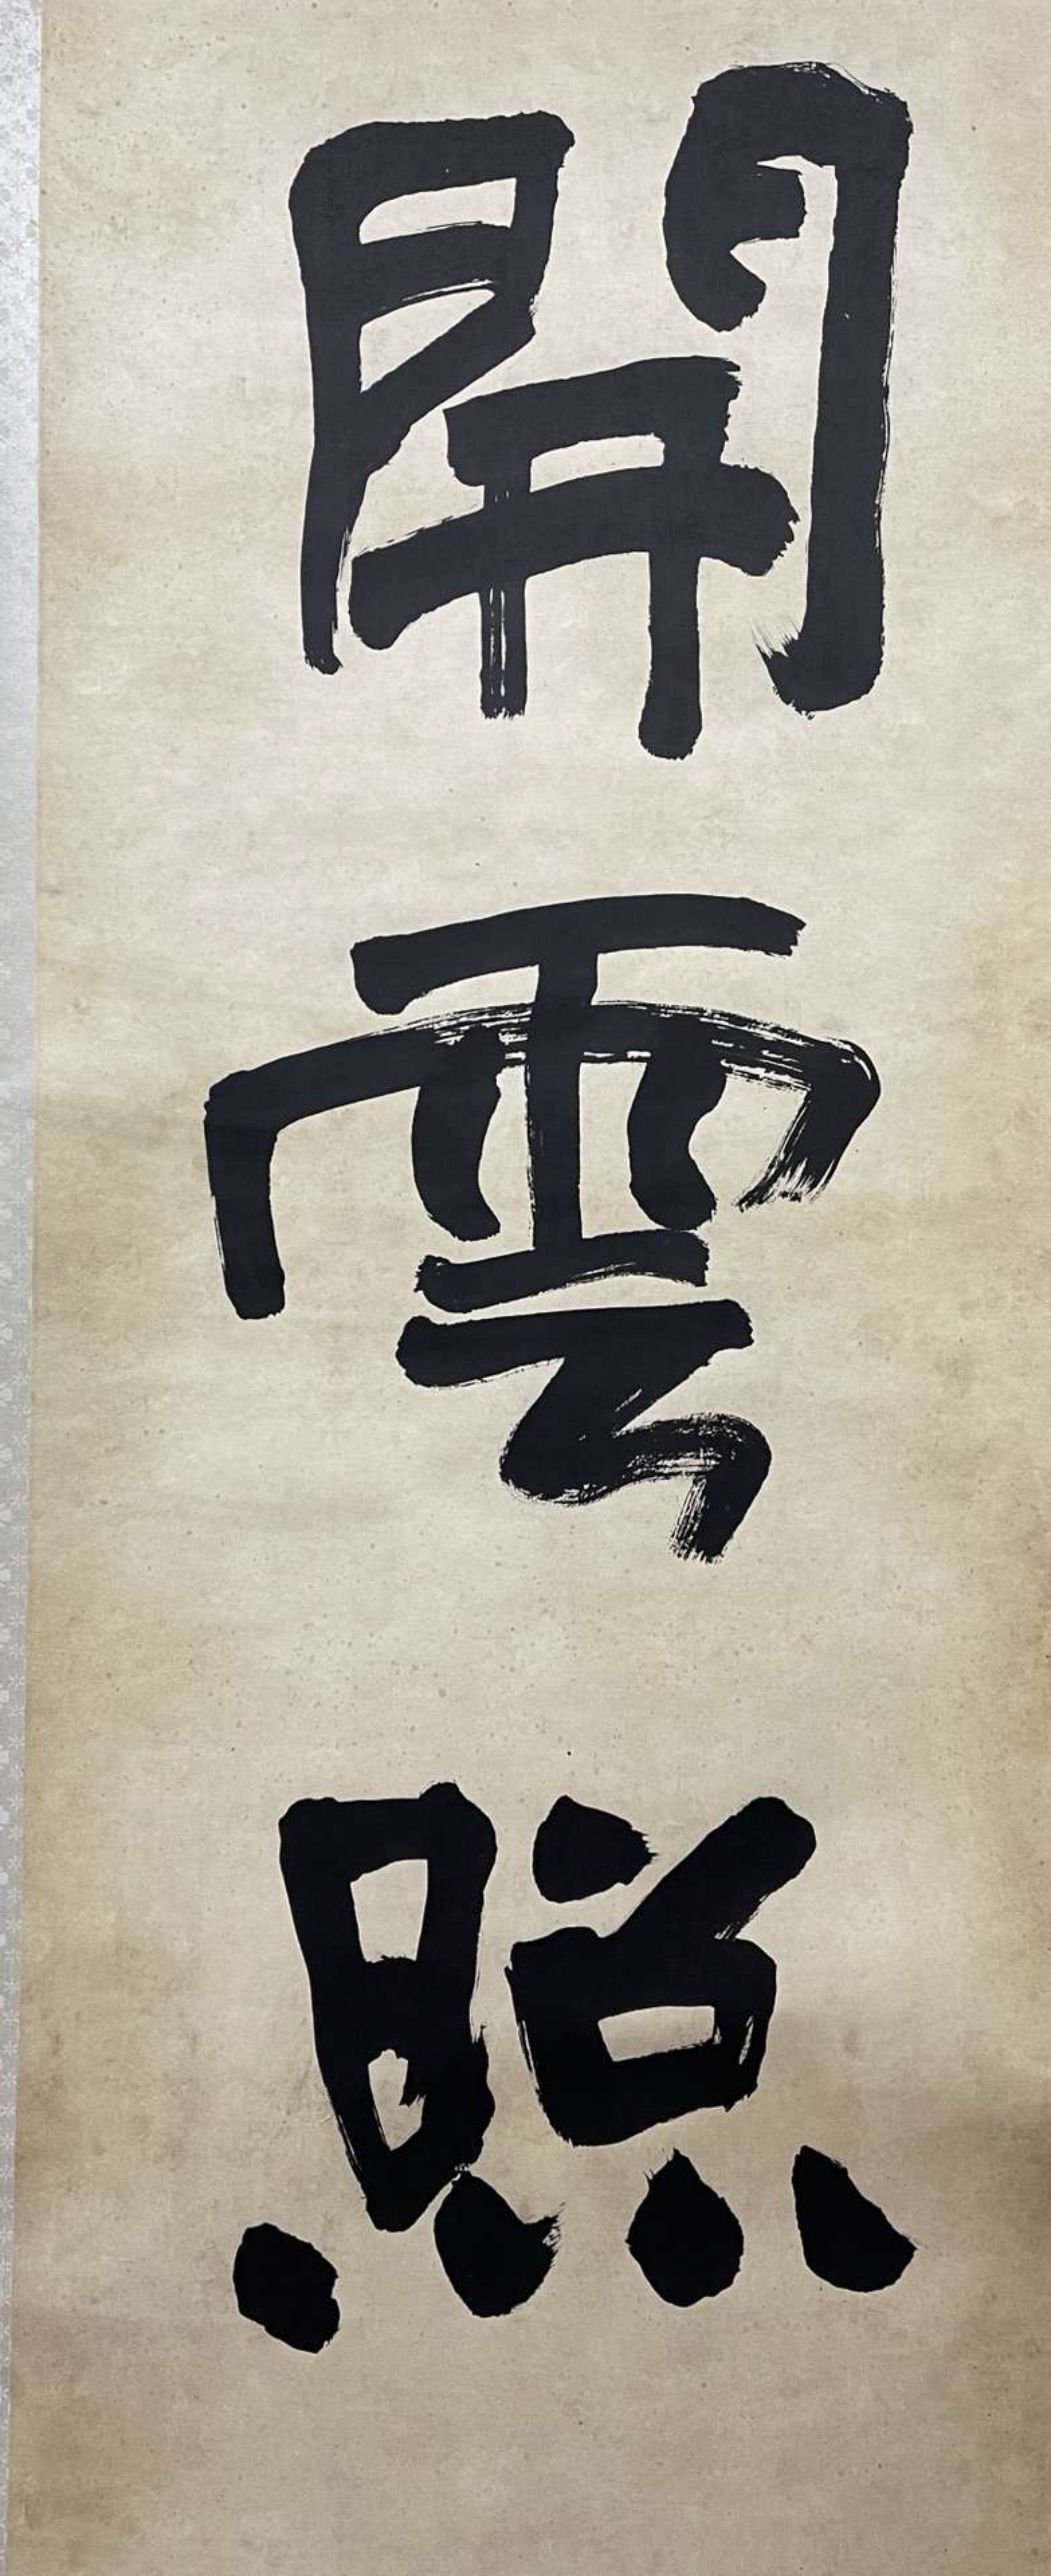 開雲照